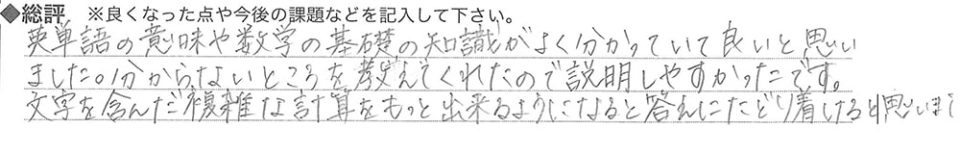 ◆総評 ※良くなった点や今後の課題などを記入して下さい。
英単語の意味や数学の基礎の知識がよく分かっていて良いと思い
ました。分からないところを教えてくれたので説明しやすかったです。
文字を含んだ複雑な計算をもっと出来るようになると答えにたどり着けると思いまし